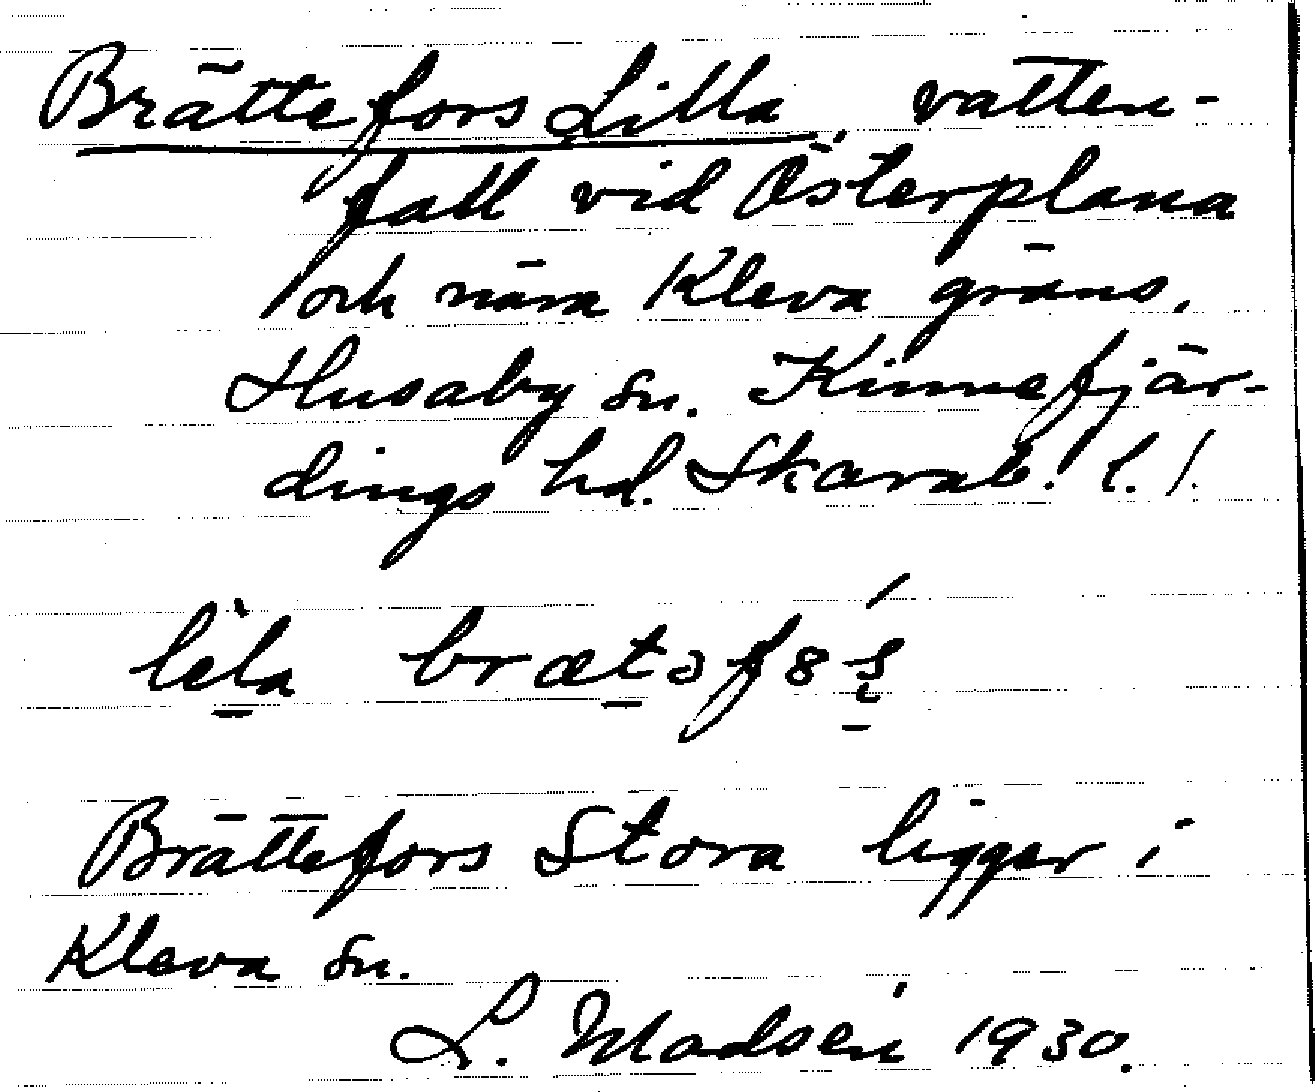 Brättefors Lilla, vatten-
fall vid Österplana
och nära Kleva gräns,
Husaby sn. Kinnefjär-
dings hd. Skarab. l.
Brättefors Stora ligger i
Kleva sn.
L. Madsén 1930.